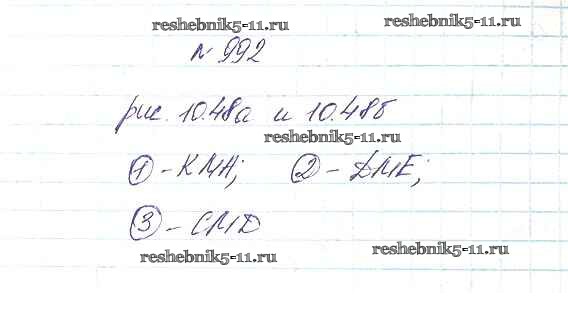 reshebnik5-11.ru reshebnik5-11.ru
№ 992
рис. 10.48а и 10.48б
reshebnik5-11.ru
① - КМН; ② - DME;
③ - CMD
reshebnik5-11.ru reshebnik5-11.ru